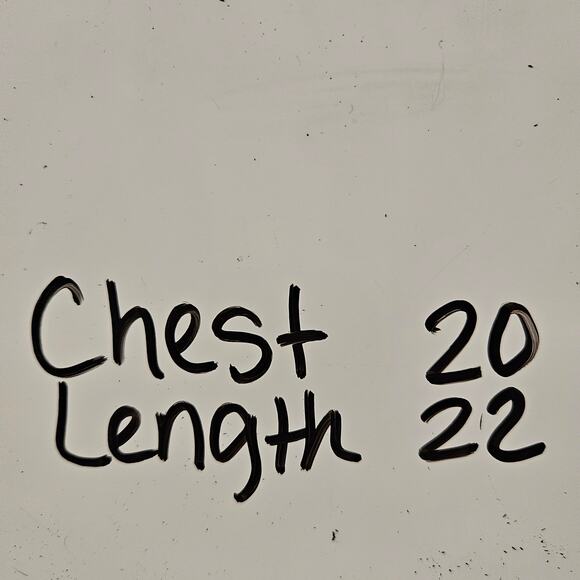 Chest 20
Length 22